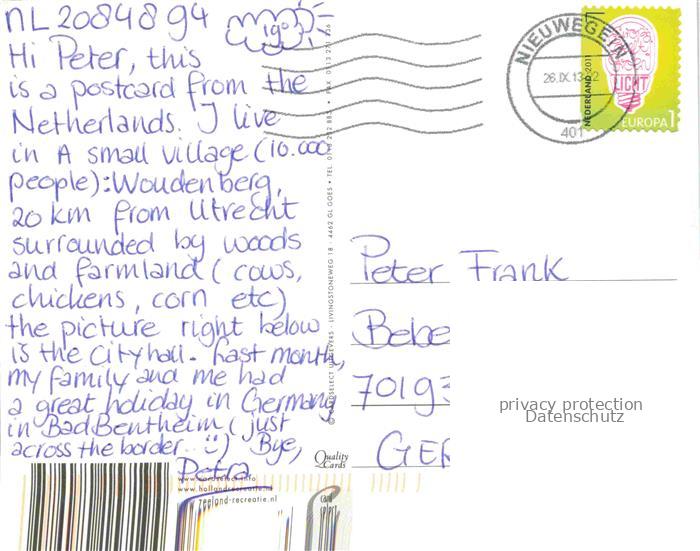 NL2084894
1901
Hi Peter, this
is a postcard from the
Netherlands. I live
in A small village (10.000
people): Woudenberg,
20 km from Utrecht
surrounded by woods
and farmland (cows,
chickens, corn etc)
the picture right below
is the Cityhall. Last month,
my family and me had
a great holiday in Germany
in Bad Bentheim (just
across the border.. :) Bye,
Petra
www.cardselect.info
www.hollandrecreatie.nl
zeeland-recreatie.nl
card
select
CARDSELECT UITGEVERS · LIVINGSTONEWEG 18 · 4462 GL GOES
Quality
Cards
NIEUWEGEIN
26.IX.13
401
NEDERLAND 2011
LICHT
EUROPA 1
Peter Frank
Bebe
70193
GER
privacy protection
Datenschutz